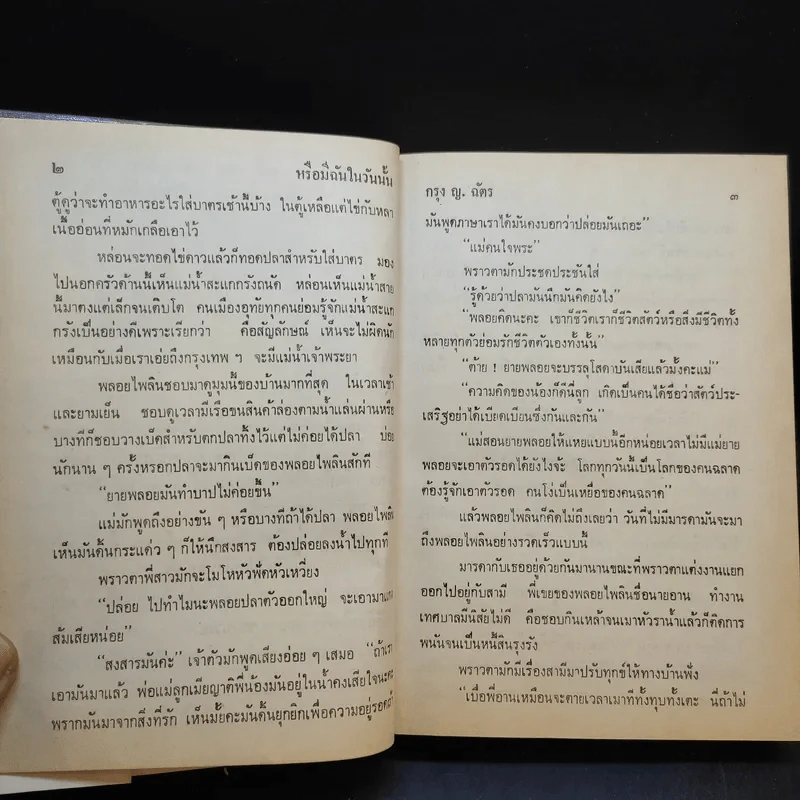 ๒
หรือมีฉันในวันนั้น
ตู้ดูว่าจะทำอาหารอะไรใส่บาตรเช้านี้บ้าง ในตู้เหลือแต่ไข่กับหลา
เนื้ออ่อนที่หมักเกลือเอาไว้
หล่อนจะทอดไข่ดาวแล้วก็ทอดปลาสำหรับใส่บาตร มอง
ไปนอกครัวด้านนี้เห็นแม่น้ำสะแกกรังถนัด หล่อนเห็นแม่น้ำสาย
นี้มาตั้งแต่เล็กจนเติบโต คนเมืองอุทัยทุกคนย่อมรู้จักแม่น้ำสะแก
กรังเป็นอย่างดีเพราะเรียกว่า คือสัญลักษณ์ เห็นจะไม่ผิดนัก
เหมือนกับเมื่อเราเอ่ยถึงกรุงเทพ ฯ จะมีแม่น้ำเจ้าพระยา
พลอยไพลินชอบมาดูมุมนี้ของบ้านมากที่สุด ในเวลาเช้า
และยามเย็น ชอบดูเวลามีเรือขนสินค้าล่องตามน้ำแล่นผ่านหรือ
บางทีก็ชอบวางเบ็ดสำหรับตกปลาทิ้งไว้แต่ไม่ค่อยได้ปลา บ่อย
นักนาน ๆ ครั้งหรอกปลาจะมากินเบ็ดของพลอยไพลินสักที
“ยายพลอยมันทำบาปไม่ค่อยขึ้น”
แม่มักพูดถึงอย่างขัน ๆ หรือบางทีถ้าได้ปลา พลอยไพลิน
เห็นมันดิ้นกระแด่ว ๆ ก็ให้นึกสงสาร ต้องปล่อยลงน้ำไปทุกที
พราวตาพี่สาวมักจะโมโหหัวฟัดหัวเหวี่ยง
“ปล่อย ไปทำไมนะพลอยปลาตัวออกใหญ่ จะเอามาแกง
ส้มเสียหน่อย”
“สงสารมันค่ะ” เจ้าตัวมักพูดเสียงอ่อย ๆ เสมอ “ถ้าเรา
เอามันมาแล้ว พ่อแม่ลูกเมียญาติพี่น้องมันอยู่ในน้ำคงเสียใจนะคะ
พรากมันมาจากสิ่งที่รัก เห็นมั้ยคะมันดิ้นยุกยิกเพื่อความอยู่รอดถ้า
กรุง ญ. ฉัตร
๓
มันพูดภาษาเราได้มันคงบอกว่าปล่อยมันเถอะ”
“แม่คนใจพระ”
พราวตามักประชดประชันใส่
“รู้ด้วยว่าปลามันนึกมันคิดยังไง”
“พลอยคิดนะคะ เขาก็ชีวิตเราก็ชีวิตสัตว์หรือสิ่งมีชีวิตทั้ง
หลายทุกตัวย่อมรักชีวิตตัวเองทั้งนั้น”
“ต๊าย ! ยายพลอยจะบรรลุโสดาบันเสียแล้วมั้งคะแม่”
“ความคิดของน้องก็ดีนี่ลูก เกิดเป็นคนได้ชื่อว่าสัตว์ประ-
เสริฐอย่าได้เบียดเบียนซึ่งกันและกัน”
“แม่สอนยายพลอยให้แหยแบบนี้อีกหน่อยเวลาไม่มีแม่ยาย
พลอยจะเอาตัวรอดได้ยังไงจ้ะ โลกทุกวันนี้เป็นโลกของคนฉลาด
ต้องรู้จักเอาตัวรอด คนโง่เป็นเหยื่อของคนฉลาด”
แล้วพลอยไพลินก็คิดไม่ถึงเลยว่า วันที่ไม่มีมารดามันจะมา
ถึงพลอยไพลินอย่างรวดเร็วแบบนี้
มารดากับเธออยู่ด้วยกันมานานขณะที่พราวตาแต่งงานแยก
ออกไปอยู่กับสามี พี่เขยของพลอยไพลินชื่อนายอาน ทำงาน
เทศบาลมีนิสัยไม่ดี คือชอบกินเหล้าจนเมาหัวราน้ำแล้วก็ติดการ
พนันจนเป็นหนี้สินรุงรัง
พราวตามักมีเรื่องสามีมาปรับทุกข์ให้ทางบ้านฟัง
“เบื่อพี่อานเหมือนจะตายเวลาเมาทีทั้งทุบทั้งเตะ นี่ถ้าไม่